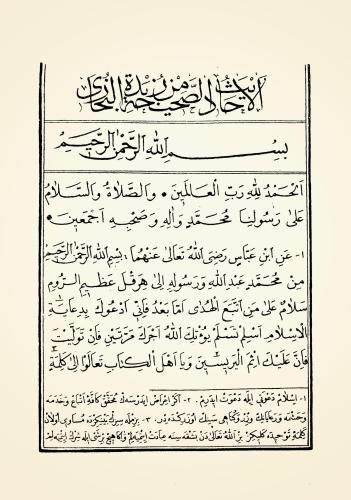 الأحاديث الصحيحة من زبدة البخاري
بسم الله الرحمن الرحيم
اَلْحَمْدُ لِلّٰهِ رَبِّ الْعَالَمِينَ • وَالصَّلَاةُ وَالسَّلَامُ
عَلَى رَسُولِنَا مُحَمَّدٍ وَآلِهِ وَصَحْبِهِ أَجْمَعِينَ •
١- عَنِ ابْنِ عَبَّاسٍ رَضِيَ اللّٰهُ تَعَالَى عَنْهُمَا ، بِسْمِ اللّٰهِ الرَّحْمٰنِ الرَّحِيمِ
مِنْ مُحَمَّدٍ عَبْدِ اللّٰهِ وَرَسُولِهِ إِلَى هِرَقْلَ عَظِيمِ الرُّومِ
سَلَامٌ عَلَى مَنِ اتَّبَعَ الْهُدَى أَمَّا بَعْدُ فَإِنِّي أَدْعُوكَ بِدِعَايَةِ
الْإِسْلَامِ أَسْلِمْ تَسْلَمْ يُؤْتِكَ اللّٰهُ أَجْرَكَ مَرَّتَيْنِ فَإِنْ تَوَلَّيْتَ
فَإِنَّ عَلَيْكَ إِثْمَ الْيَرِيسِيِّينَ وَيَا أَهْلَ الْكِتَابِ تَعَالَوْا إِلَى كَلِمَةٍ
١- اسلام دعوتى ايله دعوت ايدرم . ٢- اكر اعراض ايدرسه ك